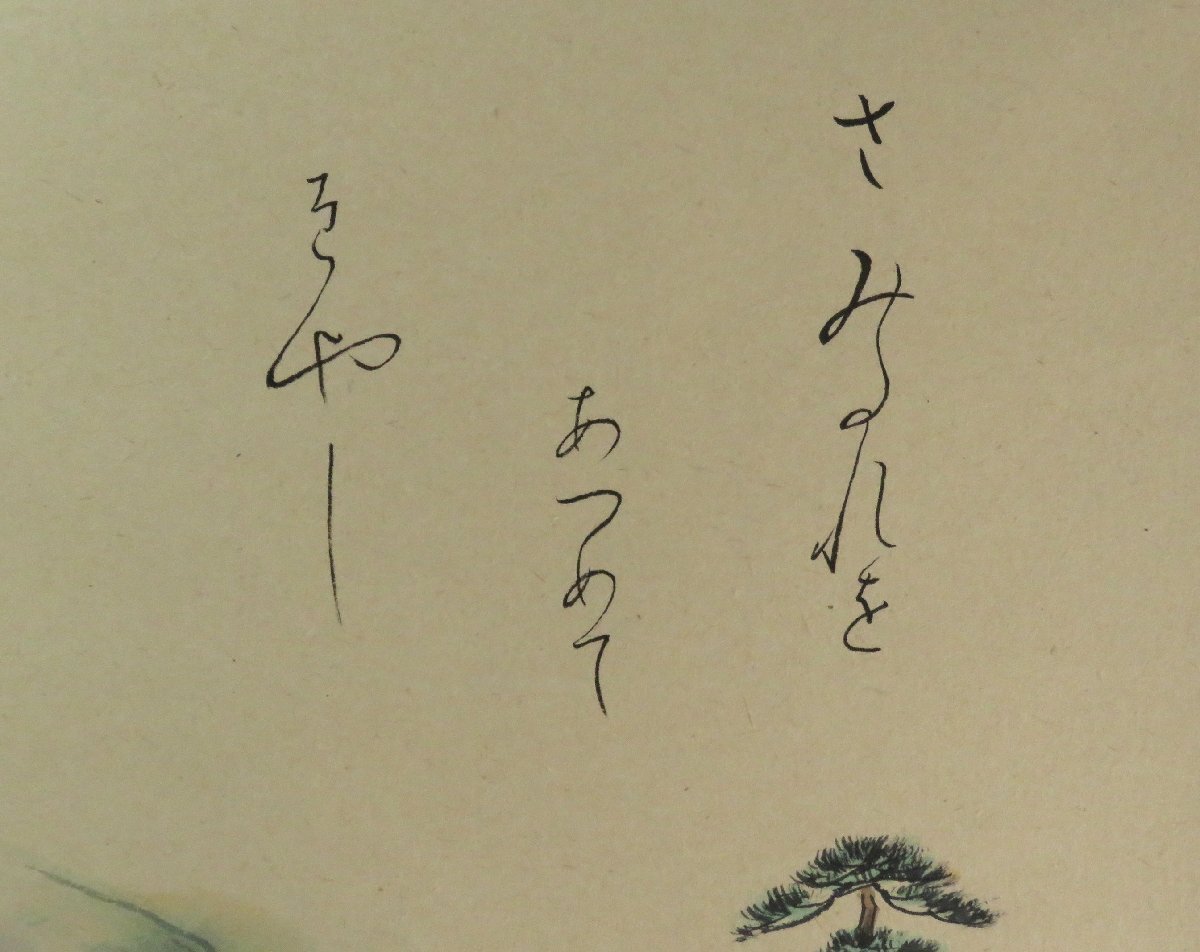 さみたれを
あつめて
はやし